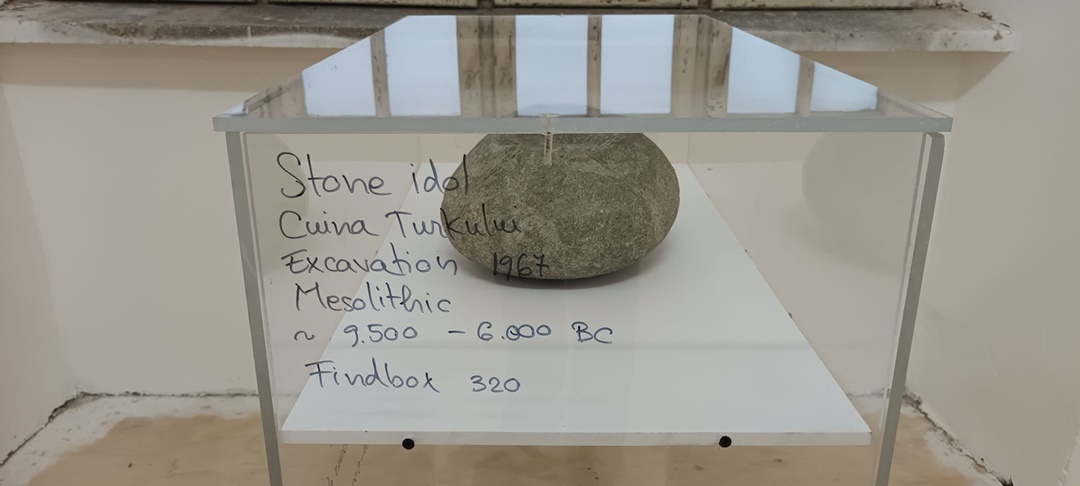 Stone idol
Cuina Turkului
Excavation 1967
Mesolithic
~ 9.500 - 6.000 BC
Findbox 320